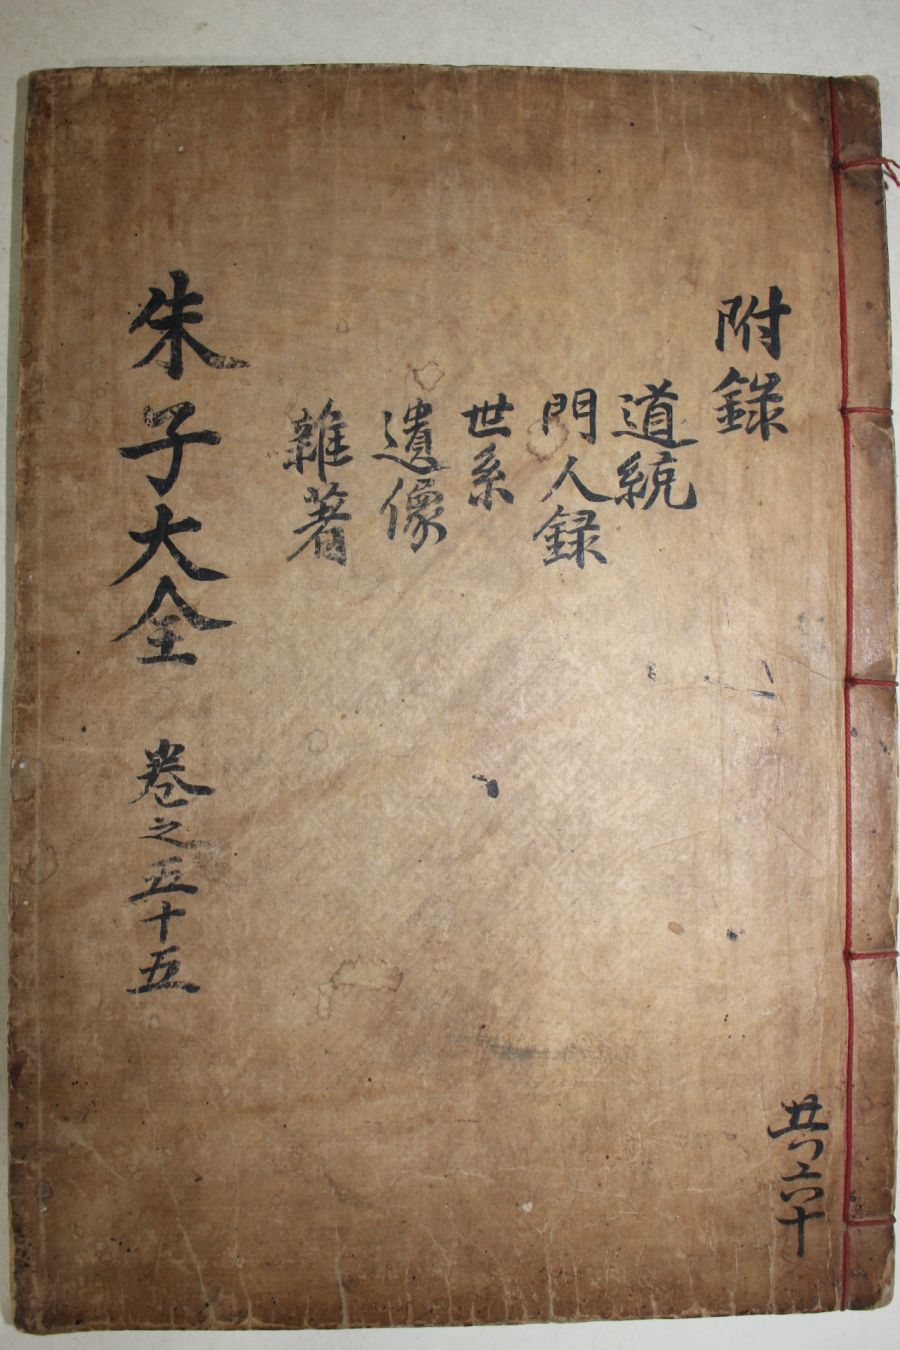 附錄
道統
門人録
世系
遺像
雜著
朱子大全 卷之五十五
共六十